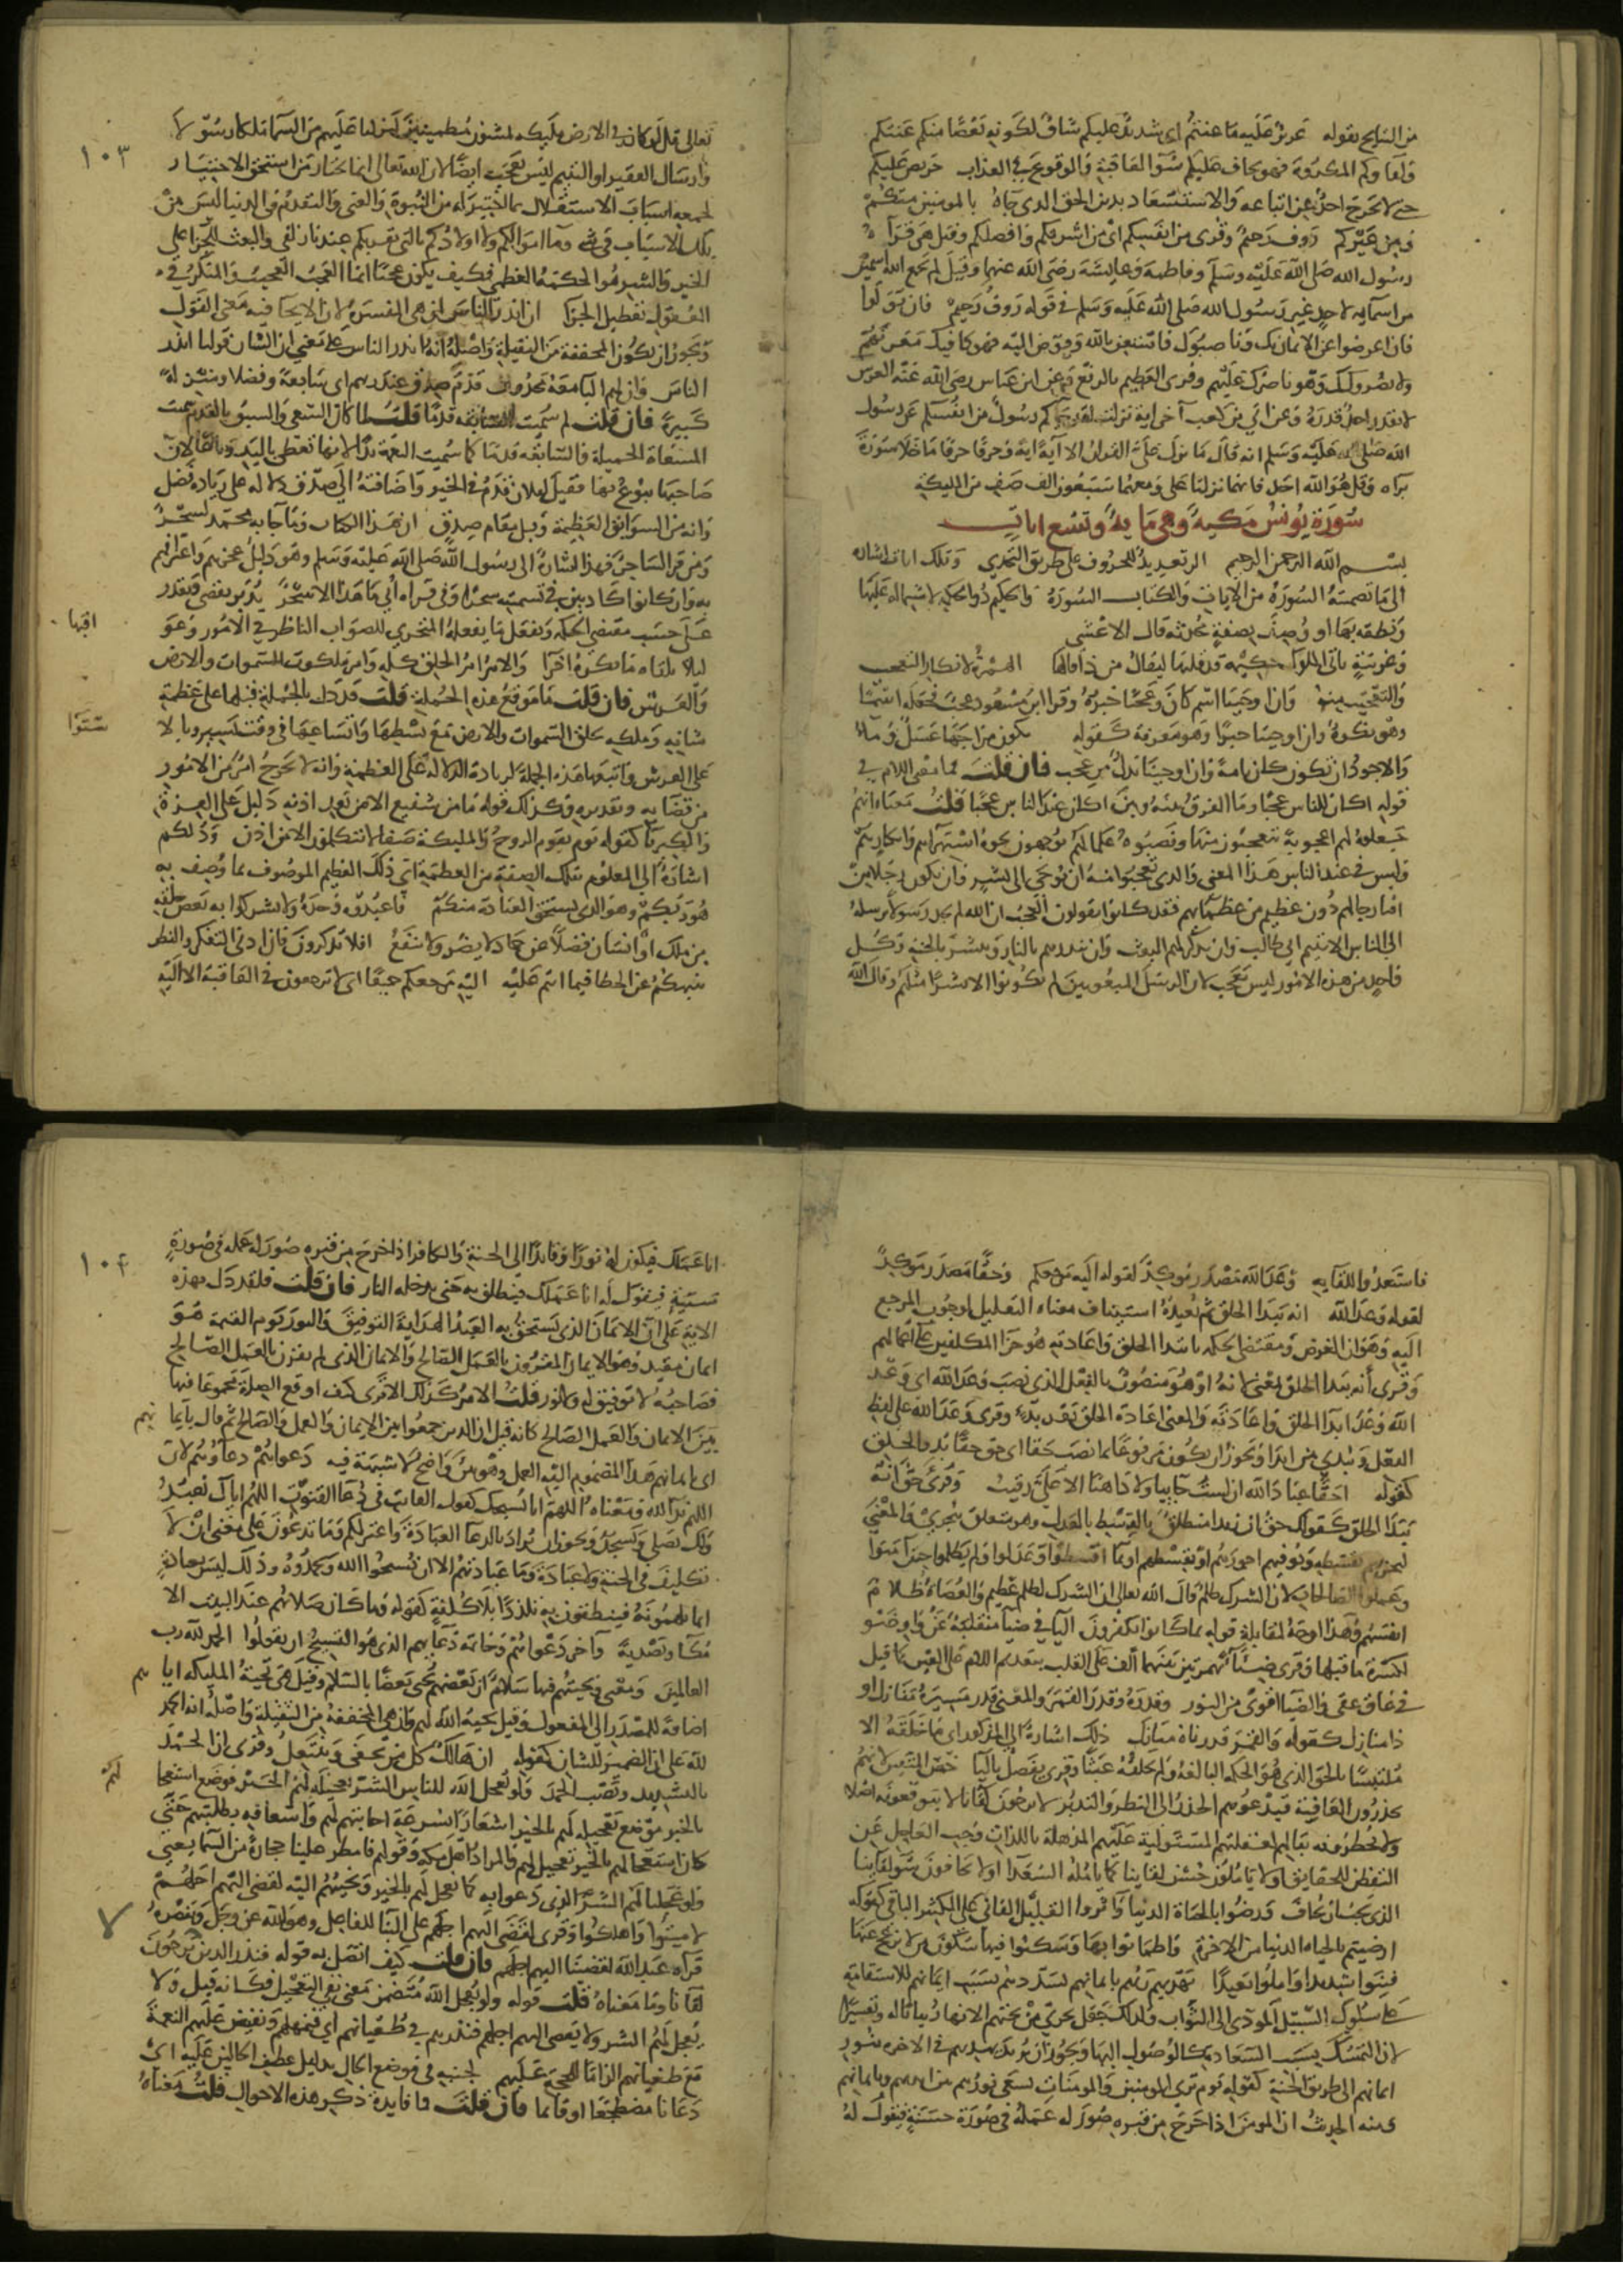 من النتائج بقوله عزيز عليه ما عنتم اى شديد عليكم شاق لكونه بعضا منكم عنتكم
ولقاوكم المكروه فهو يخاف عليكم سوء العاقبة والوقوع في العذاب حريص عليكم
حتى لا يخرج احد عن اتباعه والاستسعاد بدين الحق الذي جاء به بالمومنين منكم
ومن غيركم رءوف رحيم وقرى من انفسكم اى من اشرفكم وافضلكم وقيل هى قراة
رسول الله صلى الله عليه وسلم وفاطمة وعايشة رضى الله عنهما وقيل لم يجمع الله اسمين
من اسمايه لاحد غير رسول الله صلى الله عليه وسلم في قوله رءوف رحيم فان تولوا
فان اعرضوا عن الايمان بك وناصبوك فاستعن بالله وفوض اليه فهو كافيك معرتهم
ولا يضرونك وهو ناصرك عليهم وقرى العظيم بالرفع وعن ابن عباس رضى الله عنه العرش
لا يقدر احد قدره وعن ابي بن كعب آخر اية نزلت لقد جاكم رسول من انفسكم عن رسول
الله صلى الله عليه وسلم انه قال ما نزل على القران الا آية اية وحرفا حرفا ما خلا سورة
براه وقل هو الله احد فانهما نزلتا على ومعهما سبعون الف صف من المليكة
سورة يونس مكية وهي ماية وتسع ايات
بسم الله الرحمن الرحيم الر تعديد للحروف على طريق التحدي وتلك ايات اشارة
الى ما تضمنته السورة من الايات والكتاب السورة والحكيم ذو الحكمة لاشتماله عليها
ونطقه بها او وصف بصفة محدثه قال الاعشى
وغريبة تاتى الملوك حكيمة قد قلتها ليقال من ذا قالها الهمزة لانكار التعجب
والتعجيب منه وان اوحينا اسم كان وعجبا خبره وقرا ابن مسعود عجب فجعله اسما
وهو نكرة وان اوحينا خبرا وهو معرفة كقوله يكون مزاجها عسل وماء
والاجود ان تكون كان تامة وان اوحينا بدل من عجب فان قلت فما معنى اللام في
قوله اكان للناس عجبا وما الفرق بينه وبين اكان عند الناس عجبا قلت معناه انهم
جعلوه لهم اعجوبة يتعجبون منها ونصبوه علما لهم يوجهون نحوه استهزاهم وانكارهم
وليس في عند الناس هذا المعنى والذى تعجبوا منه ان يوحى الى بشر وان يكون رجلا من
افنا رجالهم دون عظيم من عظمايهم فقد كانوا يقولون العجب ان الله لم يجد رسولا يرسله
الى الناس الا يتيم ابي طالب وان يذكر لهم البعث وان ينذرهم بالنار ويبشر بالجنة وكل
واحد من هذه الامور ليس بعجب لان الرسل المبعوثين لم يكونوا الا بشرا مثلهم وقال الله
١٠٣
تعالى قل لو كان في الارض مليكة يمشون مطمينين لنزلنا عليهم من السما ملكا رسولا
وارسال الفقير او اليتيم ليس بعجب ايضا لان الله تعالى انما يختار من استحق الاختيار
لجمعه اسباب الاستقلال بما اختير له من النبوة والغنى والتقدم في الدنيا ليس من
تلك الاسباب في شي وما اموالكم ولا اولادكم بالتى تقربكم عندنا زلفى والبعث للجزا على
الخير والشر هو الحكمة العظمى فكيف يكون عجبا انما العجب العجيب والمنكر في
العقول تعطيل الجزا ان انذر الناس ان هى المفسرة لان الايحا فيه معنى القول
ويجوز ان تكون المخففة من الثقيلة واصله انه انذر الناس على معنى ان الشان قولنا انذر
الناس وان لهم البا معه محذوف قدم صدق عند ربهم اى سابقة وفضلا ومنزلة
كبيرة فان قلت لم سميت السابقه قدما قلت لما كان السعى والسبق بالقدم سميت
المسعاة الجميلة والسابقه قدما كما سميت النعمة يدا لانها تعطى باليد وباعا لان
صاحبها يبوع بها فقيل لفلان قدم في الخير واضافته الى صدق دلالة على زيادة فضل
وانه من السوابق العظيمة وقيل مقام صدق ان هذا الكتاب وما جا به محمد لسحر
ومن قرا لساحر فهذا اشارة الى رسول الله صلى الله عليه وسلم وهو دليل عجزهم واعترافهم
به وان كانوا كاذبين في تسميته سحرا وفى قراه أبي ما هذا الا سحر يدبر يقضى ويقدر
على حسب مقتضى الحكمه ويفعل ما يفعله المتحري للصواب الناظر في الامور وعو
اقبها
ليلا يلقاه ما يكره اخرا والامر امر الخلق كله وامر ملكوت السموات والارض
والعرش فان قلت ما موقع هذه الجملة قلت قد دل بالجملة قبلها على عظمة
شانه وملكه بخلق السموات والارض مع بسطها واتساعها في وقت يسير وبالا
ستوا
على العرش واتبعها هذه الجملة لزيادة الدلالة على العظمة وانه لا يخرج امر من الامور
من قضايه وتقديره وكذلك قوله ما من شفيع الا من بعد اذنه دليل على العزة
والكبريا كقوله يوم يقوم الروح والمليكة صفا لا يتكلمون الا من اذن وذلكم
اشارة الى المعلوم بتلك الصفة من العظمة اى ذلك العظيم الموصوف بما وصف به
هو ربكم وهو الذى يستحق العبادة منكم فاعبدوه وحده ولا تشركوا به بعض خلقه
من ملك او انسان فضلا عن جماد لا يضر ولا ينفع افلا تذكرون فان ادنى التفكر والنظر
ينبهكم عن الخطا فيما انتم عليه اليه مرجعكم جميعا اى لا ترجعون في العاقبة الا اليه
فاستعدوا للقايه وعد الله مصدر موكد لقوله اليه مرجعكم وحقا مصدر موكد
لقوله وعد الله انه يبدا الخلق ثم يعيده استيناف معناه التعليل لوجوب المرجع
اليه وهو ان الغرض ومقتضى الحكمه بابتدا الخلق واعادته هو جزا المكلفين على اعمالهم
وقرى أنه يبدا الخلق بمعنى لانه او هو منصوب بالفعل الذى نصب وعد الله اى وعد
الله وعدا بدا الخلق واعادته والمعنى اعادة الخلق بعد بديه وقرى وعد الله على لفظ
الفعل ويبدى من ابدا ويجوز ان يكون مرفوعا بما نصب حقا اى حق حقا بدو الخلق
كقوله احقا عباد الله ان لست جاييا ولا ذاهبا الا على رقيب وقرى حق انه
يبدا الخلق كقولك حق ان زيدا منطلق بالقسط بالعدل وهو متعلق بيجزي والمعنى
ليجزيهم بقسطه ويوفيهم اجورهم او بقسطهم وبما اقسطوا وعدلوا ولم يظلموا حين آمنوا
وعملوا الصالحات لان الشرك ظلم قال الله تعالى ان الشرك لظلم عظيم والعصاة ظلام
انفسهم وهذا اوجه لمقابلة قوله بما كانوا يكفرون اليا في ضيا منقلبة عن واو ضو
لكسرة ما قبلها وقرى ضيا بهمزتين بينهما الف على القلب بتقديم اللام على العين كما قيل
في عاق عقى والضيا اقوى من النور وقدره وقدر القمر والمعنى قدر مسيره منازل او
ذا منازل كقوله والقمر قدرناه منازل ذلك اشارة الى المذكور اى ما خلقه الا
ملتبسا بالحق الذى هو الحكمه البالغة ولم يخلقه عبثا وقرى يفصل باليا خص المتقين لانهم
يحذرون العاقبة فيدعوهم الحذر الى النظر والتدبر لا يرجون لقانا لا يتوقعونه اصلا
ولا يخطرونه ببالهم لغفلتهم المستولية عليهم المذهلة باللذات وحب العاجل عن
التفطن للحقايق او لا ياملون حسن لقاينا كما يامله السعدا او لا يخافون سو لقاينا
الذى يجب ان يخاف ورضوا بالحياة الدنيا واثروا القليل الفانى على الكثير الباقى كقوله
ارضيتم بالحياه الدنيا من الاخرة واطمانوا بها وسكنوا فيها سكون من لا يزعج عنها
فبنوا شديدا واملوا بعيدا يهديهم ربهم بايمانهم يسددهم بسبب ايمانهم للاستقامة
على سلوك السبيل المودى الى الثواب ولذلك جعل تجرى من تحتهم الانهار بيانا له وتفسيرا
لان التمسك بسبب السعادة كالوصول اليها ويجوز ان يريد يهديهم في الاخره بنور
ايمانهم الى طريق الجنة كقوله يوم ترى المومنين والمومنات يسعى نورهم بين ايديهم وبايمانهم
ومنه الحديث ان المومن اذا خرج من قبره صور له عمله في صورة حسنة فيقول له
١٠٤
انا عملك فيكون له نورا وقايدا الى الجنة والكافر اذا خرج من قبره صور له عمله في صورة
سيئة فيقول له انا عملك فينطلق به حتى يدخله النار فان قلت فلقد دل بهذه
الاية على ان الايمان الذى يستحق به العبد الهداية التوفيق والنور يوم القيمة هو
ايمان مقيد وهو الايمان المقرون بالعمل الصالح والايمان الذى لم يقرن بالعمل الصالح
فصاحبه لا توفيق له ولا نور قلت الامر كذلك الا ترى كيف اوقع الصلة مجموعا فيها
بين الايمان والعمل الصالح كانه قيل ان الذين جمعوا بين الايمان والعمل الصالح ثم قال بايما
نهم
اى بايمانهم هذا المضموم اليه العمل وهو بين واضح لا شبهة فيه دعواهم دعاوهم لان
اللهم ندا لله ومعناه اللهم انا نسبحك كقول القانت في دعا القنوت اللهم اياك نعبد
ولك نصلي ونسجد ويجوز ان يراد بالدعا العبادة واعتزلكم وما تدعون على معنى ان لا
تكليف في الجنة ولا عبادة وما عبادتهم الا ان يسبحوا الله ويحمدوه وذلك ليس بعبادة
انما يلهمونه فينطقون به تلذذا بلا كلفة كقوله وما كان صلاتهم عند البيت الا
مكا وتصدية وآخر دعواهم وخاتمة دعايهم الذى هو التسبيح ان يقولوا الحمد لله رب
العالمين ومعنى وتحيتهم فيها سلام ان بعضهم يحيى بعضا بالسلام وقيل هى تحية المليكه ايا
هم
اضافة للمصدر الى المفعول وقيل تحية الله لهم وان هى المخففة من الثقيلة واصله انه الحمد
لله على ان الضمير للشان كقوله ان هالك كل من يحفى وينتعل وقرى ان الحمد
بالتشديد ونصب الحمد ولو يعجل الله للناس الشر تعجيله لهم الخير فوضع استعجا
لهم
بالخير موضع تعجيله لهم بالخير اشعارا بسرعة اجابتهم لهم واسعافه بطلبتهم حتى
كان استعجالهم بالخير تعجيل لهم والمراد اهل مكه وقولهم فامطر علينا حجارة من السما يعنى
ولو عجلنا لهم الشر الذى دعوا به كما نعجل لهم بالخير ونجيبهم اليه لقضى اليهم اجلهم
لاميتوا واهلكوا وقرى لقضى اليهم اجلهم على البنا للفاعل وهو الله عز وجل وتنصره
قراه عبد الله لقضينا اليهم اجلهم فان قلت كيف اتصل به قوله فنذر الذين لا يرجون
لقانا وما معناه قلت قوله ولو يعجل الله متضمن معنى نفى التعجيل فكانه قيل ولا
يعجل لهم الشر ولا يقضى اليهم اجلهم فنذرهم في طغيانهم اى فنمهلهم ونفيض عليهم النعمة
مع طغيانهم الزاما للحجة عليهم لجنبه في موضع الحال بدليل عطف الحالين عليه اى
دعانا مضطجعا او قاعدا او قايما فان قلت ما فايدة ذكر هذه الاحوال قلت معناه